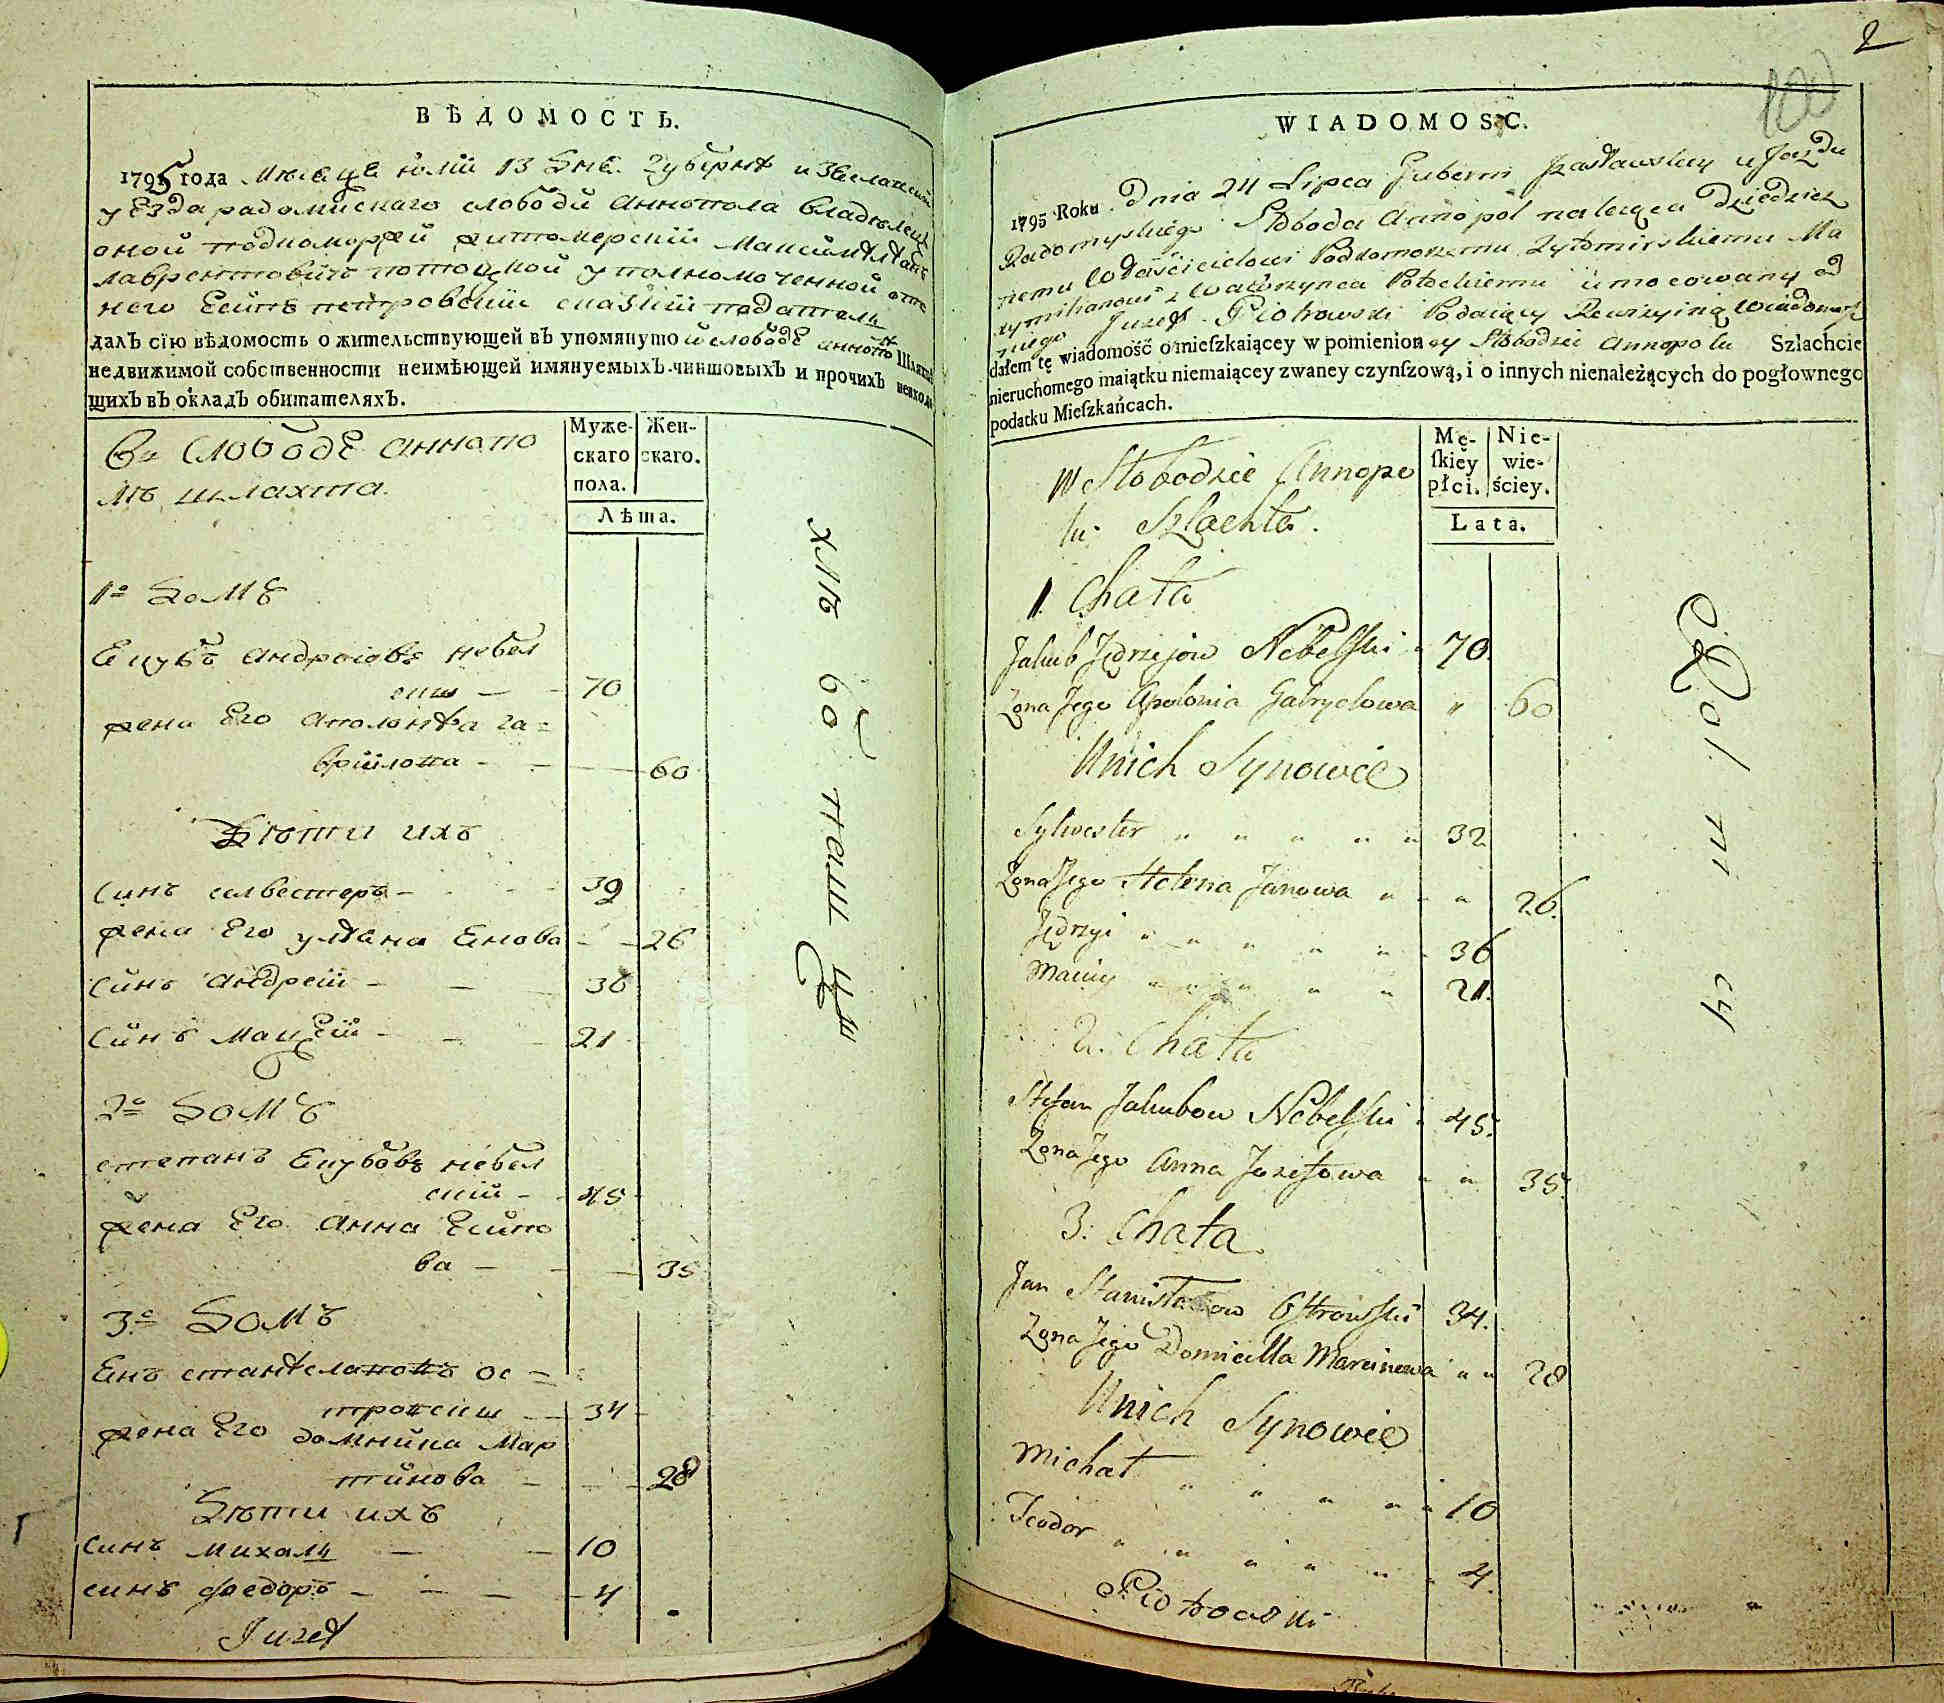 ВѢДОМОСТЬ.
1795 года Месяца юлiи 13 дня. Губернѣ изяславской
уезда радомискаго слободи Аннопола владѣлец
оной подкоморжiй житомерскiй Максимилiанъ
лаврентовичъ потоцкой уполномоченной отъ
него Есипъ петровскiй сказкiй подател
далЪ сїю вѣдомость о жительствующей вЪ упомянутой слободе Аннополѣ Шляхтѣ
недвижимой собственности неимѣющей имянуемыхЪ чиншовыхЪ и прочихЪ невходя
щихЪ вЪ окладЪ обитателяхЪ.
Муже-
скаго
пола.
Жен-
скаго.
Лѣта.
Въ Слободе аннопо
лѣ шляхта.
1й Домъ
Екубъ андреовъ небел
скiй — 70
жена Его аполонiя га=
врiилова — 60
Дѣти ихъ
Синъ силвестеръ — 32
жена Его улiана Енова — 26
Синъ андрей — 36
Синъ Мацей — 21
2й Домъ
степанъ Екубовъ небел
скiй — 45
жена Его Анна Есипо
ва — 35
3й Домъ
Енъ станiславовъ ос=
тровскiй — 34
жена Его домникиа Мар
тинова — 28
Дѣти ихъ
синъ михалъ — 10
синъ феодоръ — 4
Juzef
WIADOMOSC.
2
100
1795 Roku Dnia 24 Lipca Gubernii Izasławskiey ujazdu
Radomyskiego Słoboda Annopol należąca Dziedzicz
nemu Właścicielowi Podkomorzemu Żytomirskiemu Ma
xymilianowi z Wawrzynca Potockiemu umocowany od
niego Juzef Piotrowski Podaiący Rewizyiną Wiadomość
dałem tę wiadomość o mieſzkaiącey w pomienioney Słobodzie Annopolu Szlachcie
nieruchomego maiątku niemaiącey zwaney czynſzową, i o innych nienależących do pogłownego
podatku Mieſzkańcach.
Mę-
ſkiey
płci.
Nie-
wie-
ściey.
Lata.
W Słobodzie Annopo
lu Szlachta.
1. Chata
Jakub Jędrzejow Nebelſki 70.
Żona Jego Apolonia Gabryelowa 60
U nich Synowie
Sylwester 32
Żona Jego Helena Janowa 26.
Jędrzyi 36
Maciey 21.
2. Chata
Stefan Jakubow Nebelſki 45.
Żona Jego Anna Jozefowa 35.
3. Chata
Jan Stanisławow Ostrowſki 34.
Żona Jego Domicella Marcinowa 28
U nich Synowie
Michał 10
Teodor 4.
Piotrowski